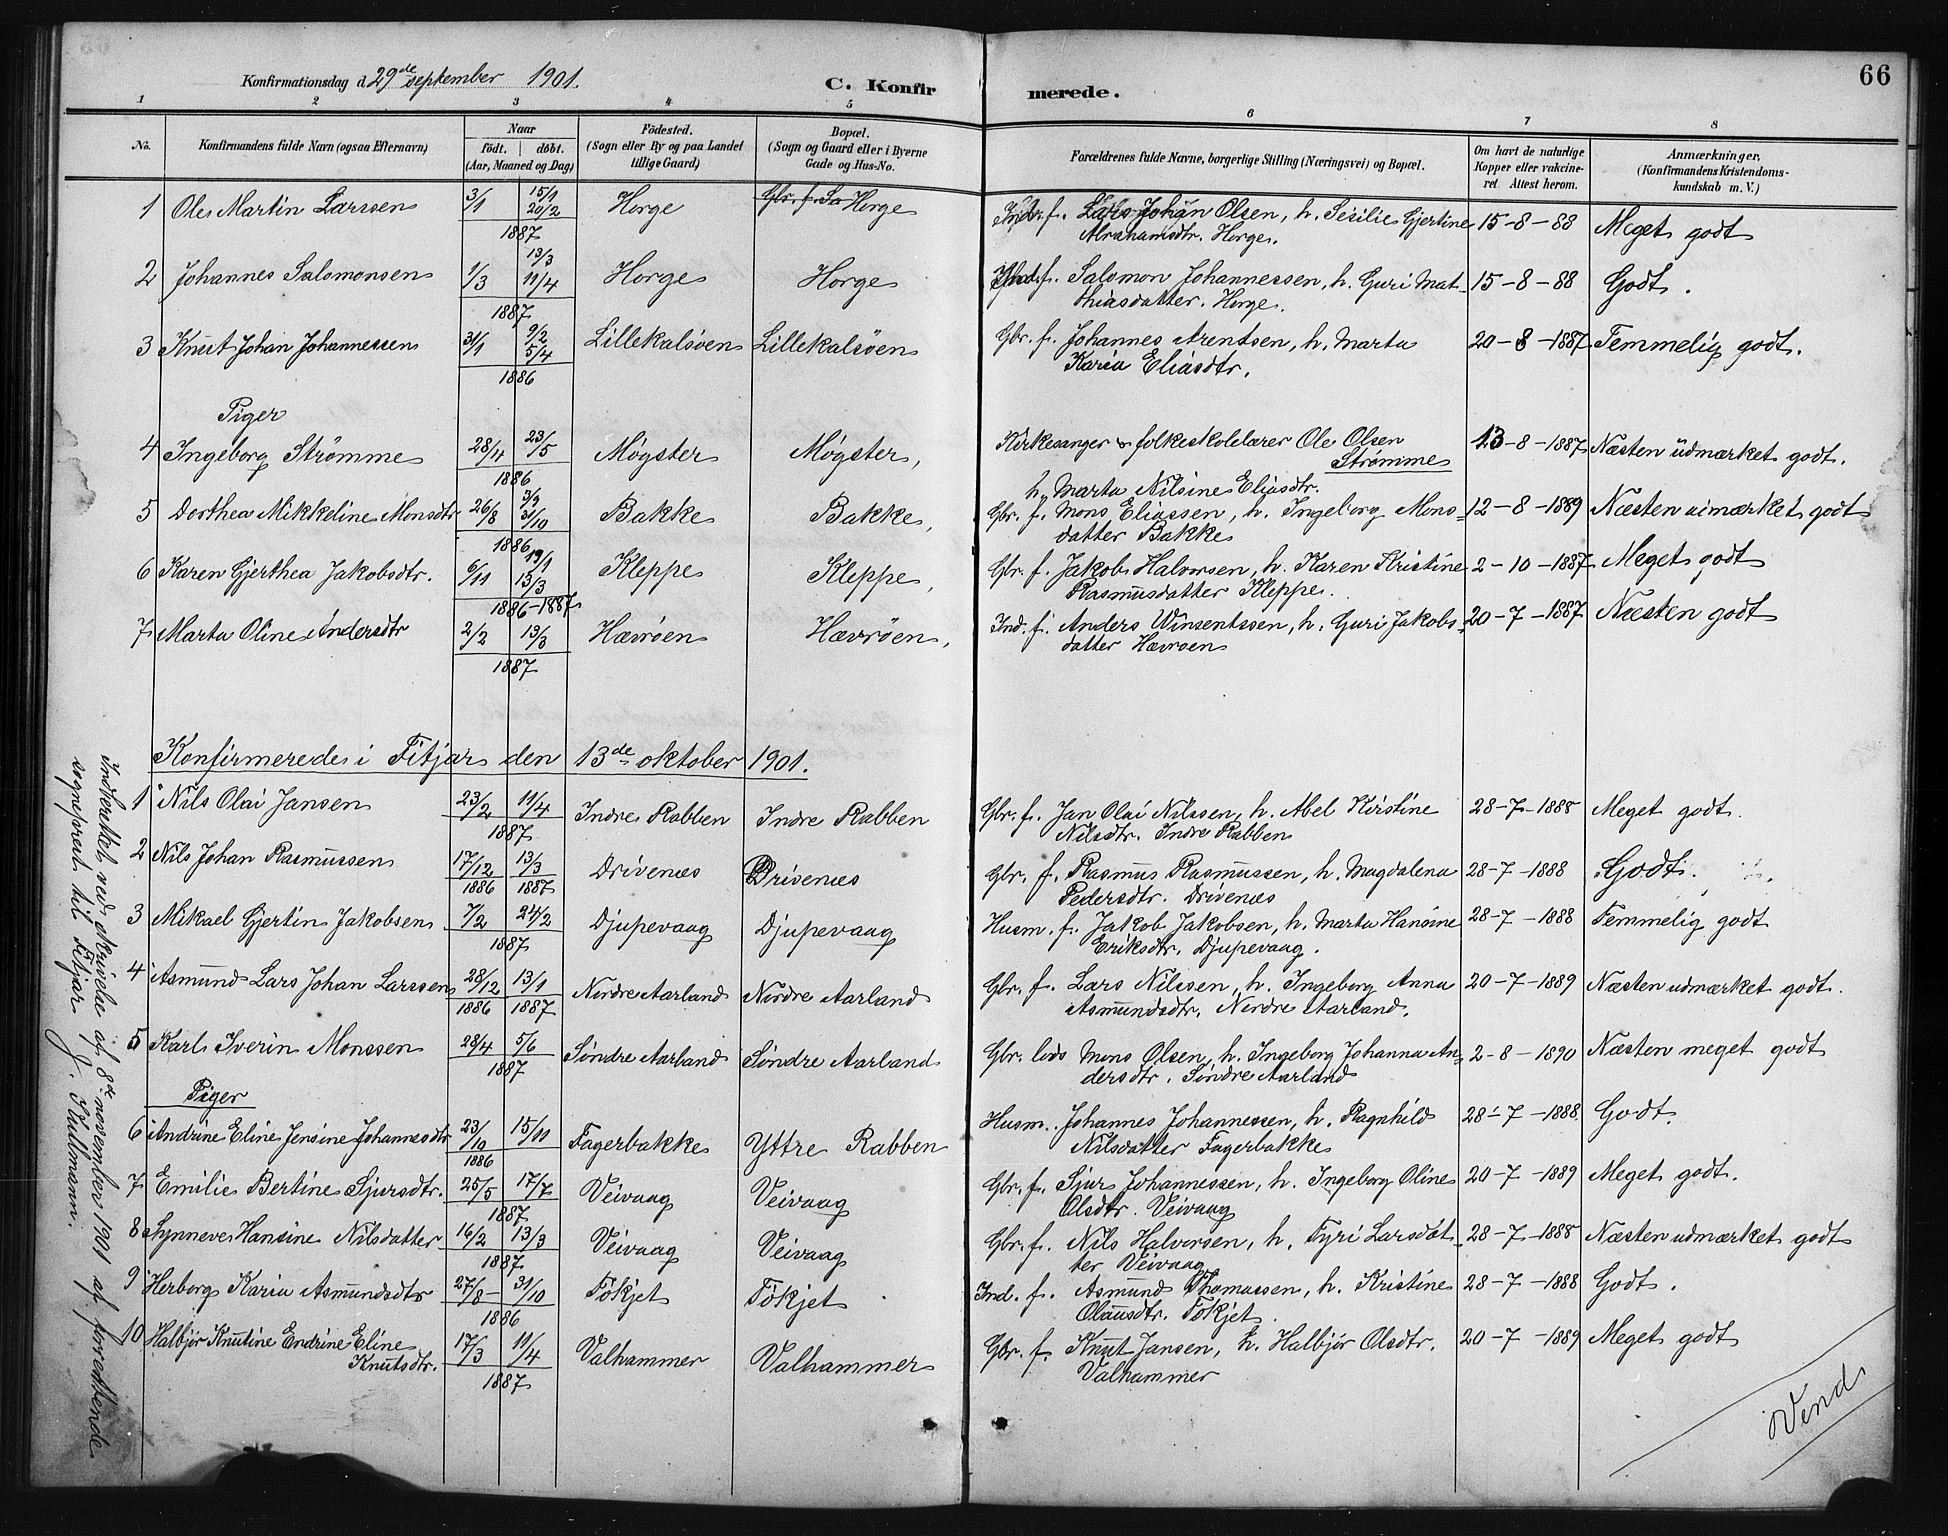 66
Konfirmationsdag d. 29de september 1901.
C. Konfirmerede.
1 2 3 4 5 6 7 8
No. | Konfirmandens fulde Navn (ogsaa Efternavn) | Naar født. døbt. (Aar, Maaned og Dag) | Födested. (Sogn eller By og paa Landet tillige Gaard) | Bopæl. (Sogn og Gaard eller i Byerne Gade og Hus-No. | Forældrenes fulde Navne, borgerlige Stilling (Næringsvei) og Bopæl. | Om havt de naturlige Kopper eller vakcineret. Attest herom. | Anmærkninger. (Konfirmandens Kristendomskundskab m. V.)
1 Ole Martin Larssen 3/1 15/1 20/2 1887 Horge Horge f. Lars Johan Olsen, h. Sesilie Gjertine Abrahamsdtr. Horge. 15-8-88 Meget godt
2 Johannes Salomonsen 1/3 13/3 11/4 1887 Horge Horge f. Salomon Johannessen, h. Guri Matthiasdatter. Horge. 15-8-88 Godt.
3 Knut Johan Johannessen 31/1 9/2 5/4 1886 Lillekalsöen Lillekalsöen Gbr. f. Johannes Arentsen, h. Marta Karia Eliasdtr. 20-8-1887 Temmelig godt.
Piger
4 Ingeborg Strømme 28/4 23/5 1886 Møgster Møgster, Kirkesanger & folkeskolelærer Ole Olsen Strømme h. Marta Nilsine Eliasdtr. 13-8-1887 Næsten udmærket godt.
5 Dorthea Mikkeline Monsdtr 26/8 3/9 31/10 1886 Bakke Bakke, Gbr. f. Mons Eliassen, h. Ingeborg Monsdatter Bakke 12-8-1889 Næsten uimærket godt
6 Karen Gjerthea Jakobsdtr. 6/11 19/1 13/3 1886-1887 Kleppe Kleppe, Gbr. f. Jakob Halvorsen, h. Karen Kristine Rasmusdatter Kleppe. 2-10-1887 Meget godt
7 Marta Oline Andersdtr 2/2 13/3 1887 Hævröen Hævröen, Ind. f. Anders Vinsentssen, h. Guri Jakobsdatter Hævröen 20-7-1887 Næsten godt
Konfirmerede i Fitjar den 13de oktober 1901.
1 Nils Olai Jansen 23/2 11/4 1887 Indre Rabben Indre Rabben Gbr. f. Jan Olai Nilssen, h. Abel Kirstine Nilsdtr. Indre Rabben 28-7-1888 Meget godt.
2 Nils Johan Rasmussen 17/12 1886 13/3 1887 Drivenæs Drivenæs Gbr. f. Rasmus Rasmussen, h. Magdalena Pedersdtr. Drivenæs 28-7-1888 Godt.
3 Mikael Gjertin Jakobsen 7/2 24/2 1887 Djupevaag Djupevaag Husm. f. Jakob Jakobsen, h. Marta Hansine Eriksdtr. Djupevaag. 28-7-1888 Temmelig godt
4 Asmund Lars Johan Larssen 28/12 1886 13/1 1887 Nordre Aarland Nordre Aarland Gbr. f. Lars Nilssen, h. Ingeborg Anna Asmundsdtr. Nordre Aarland. 20-7-1889 Næsten udmærket godt.
5 Karl Iverin Monssen 28/4 5/6 1887 Søndre Aarland Søndre Aarland Gbr. lods Mons Olsen, h. Ingeborg Johanna Andersdtr. Søndre Aarland 2-8-1890 Næsten meget godt
Piger
6 Andrine Eline Jensine Johannesdtr 23/10 15/11 1886 Fagerbakke Yttre Rabben Husm. Johannes Johannessen, h. Ragnhild Nilsdatter Fagerbakke 28-7-1888 Godt.
7 Emilie Bertine Sjursdtr. 25/5 17/7 1887 Veivaag Veivaag Gbr. f. Sjur Johannessen, h. Ingeborg Oline Olsdtr. Veivaag 20-7-1889 Meget godt.
8 Synneve Hansine Nilsdatter 16/2 13/3 1887 Veivaag Veivaag Gbr. f. Nils Halvorsen, h. Fyri Larsdatter Veivaag 28-7-1888 Næsten udmærket godt
9 Herborg Karia Asmundsdtr 27/8 31/10 1886 Tökjet Tökjet Ind. f. Asmund Thomassen, h. Kristine Olausdtr. Tökjet. 28-7-1888 Godt.
10 Halbjør Knutine Endrine Eline Knutsdtr. 17/3 11/4 1887 Valhammer Valhammer Gbr. f. Knut Jansen, h. Halbjør Olsdtr. Valhammer 20-7-1889 Meget godt
Vend
Indberettet ved skrivelse af 8de november 1901 af forrettende
sogneprest til Fitjar J. Kullmann.